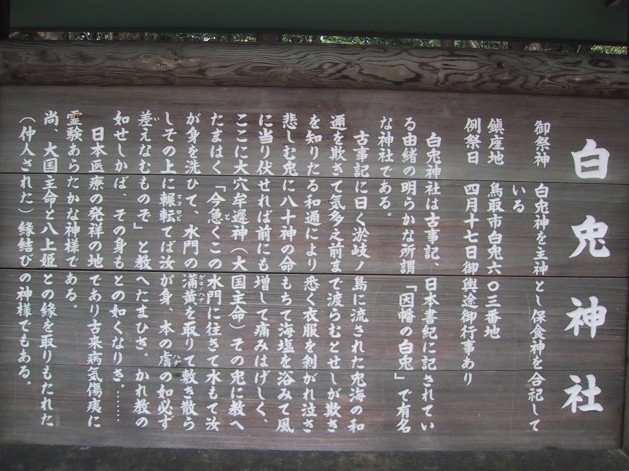 白兎神社
御祭神　白兎神を主神とし保食神を合祀して
いる
鎮座地　鳥取市白兎六〇三番地
例祭日　四月十七日御輿途御行事あり
白兎神社は古事記、日本書紀に記されてい
る由緒の明らかな所謂「因幡の白兎」で有名
な神社である。
古事記に曰く淤岐ノ島に流された兎海の和
邇を欺きて気多之前まで渡らむとせしが欺き
を知りたる和邇により悉く衣服を剥がれ泣き
悲しむ兎に八十神の命もちて海塩を浴みて風
に当り伏せれば前にも増して痛みはげしく、
ここに大穴牟遅神（大国主命）その兎に教へ
たまはく「今急くこの水門に往きて水もて汝
が身を洗ひて、水門の蒲黄を取りて敷き散ら
しその上に輾転てば汝が身、本の膚の如必ず
差えなむものぞ」と教へたまひき。かれ教の
如せしかば、その身もとの如くなりき……
日本医療の発祥の地であり古来病気傷痍に
霊験あらたかな神様である。
尚、大国主命と八上姫との縁を取りもたれた
（仲人された）縁結びの神様でもある。